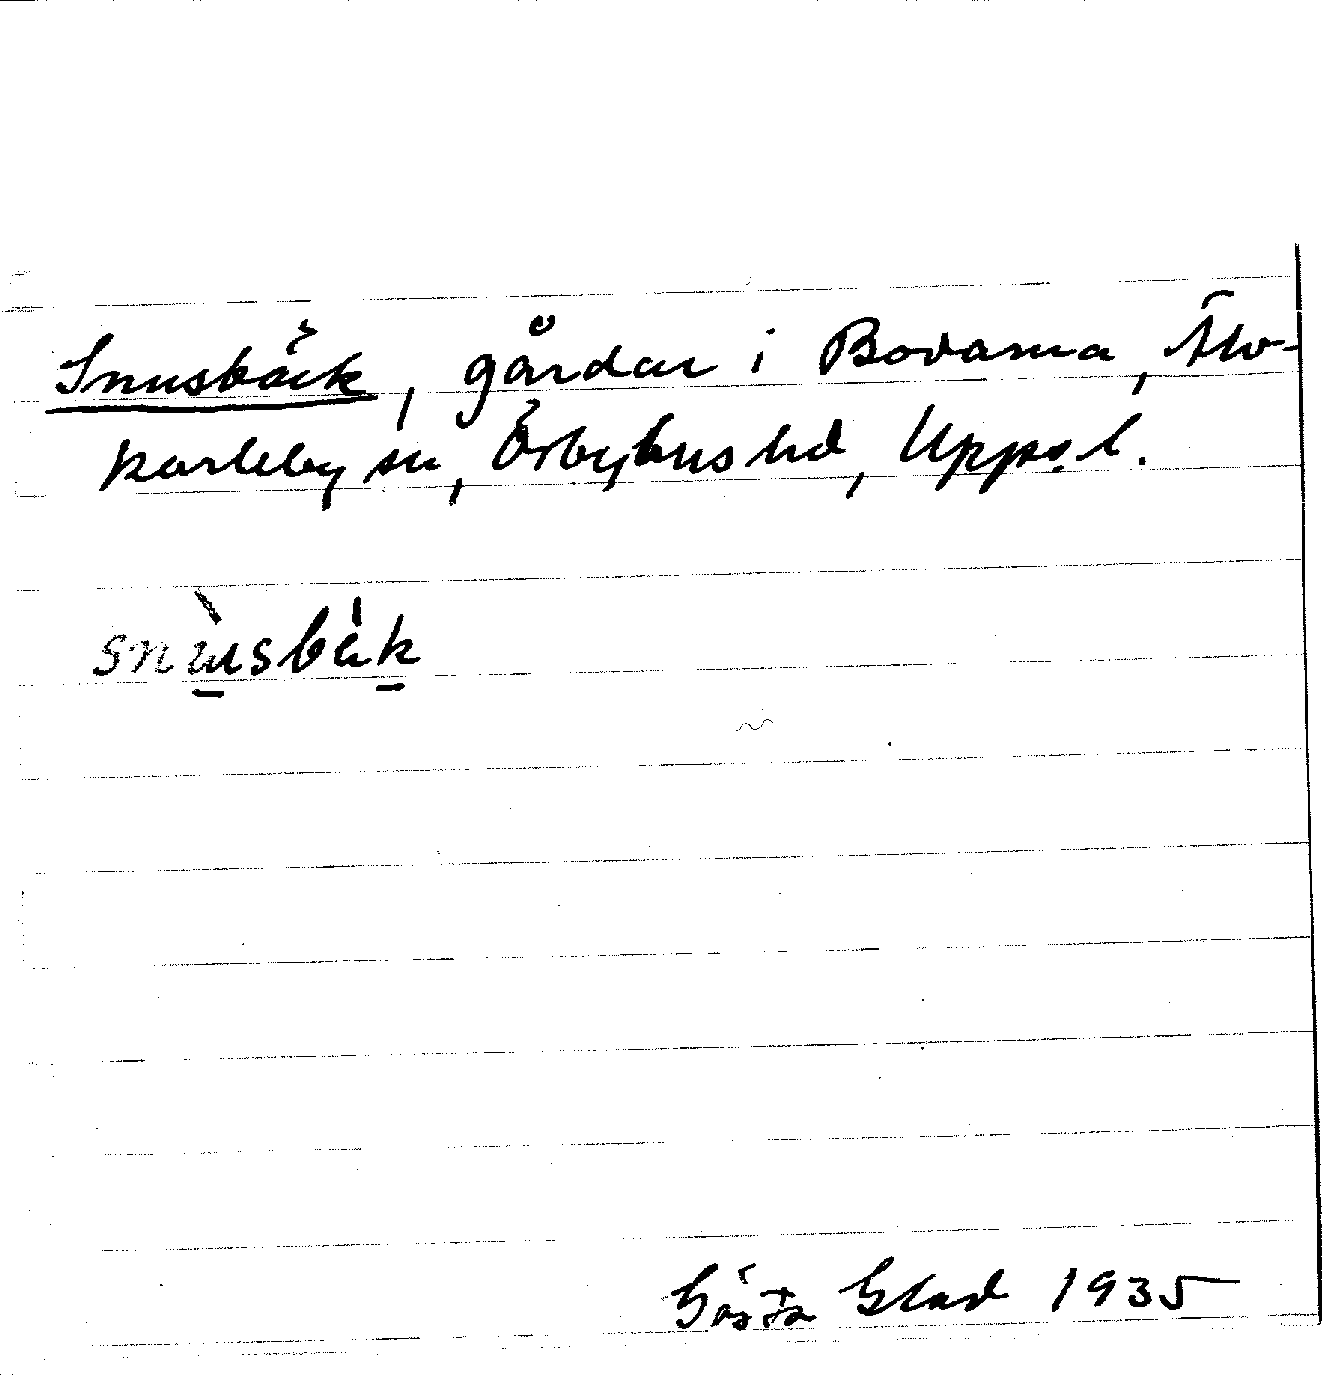 Snusbäck, gårdar i Bodarna, Älv-
karleby sn, Örbyhus hd, Upps. l.
snùsbäk
Gösta Glad 1935